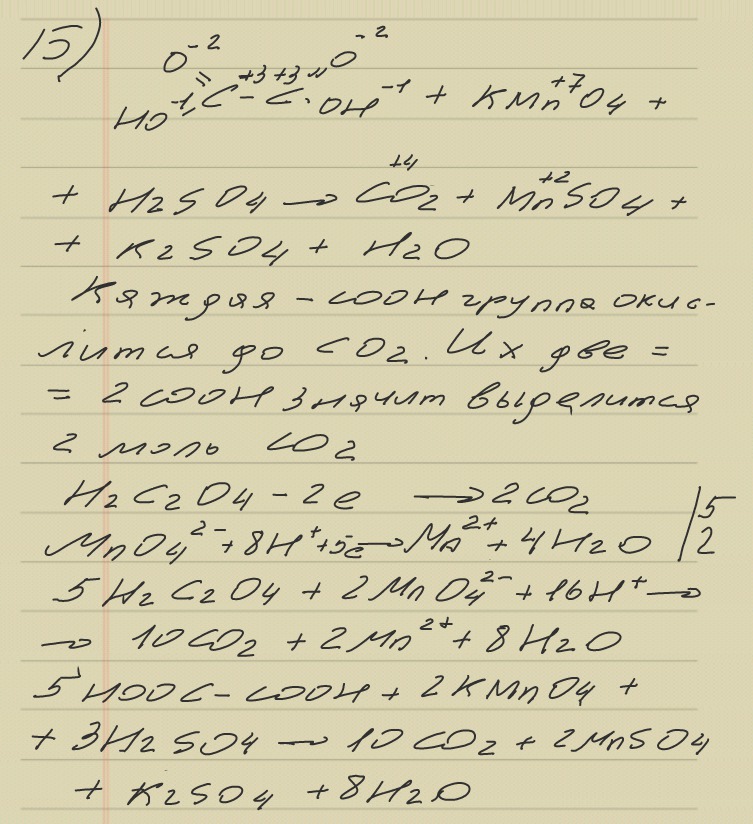 15)
O⁻² O⁻²
HO⁻¹ C⁺³ - C⁺³ OH⁻¹ + KMn⁺⁷O₄ +
+ H₂SO₄ → C⁺⁴O₂ + Mn⁺²SO₄ +
+ K₂SO₄ + H₂O
Каждая - COOH группа окис-
лится до CO₂. Их две =
= 2 COOH значит выделится
2 моль CO₂
H₂C₂O₄ - 2e → 2CO₂ | 5
MnO₄²⁻ + 8H⁺ + 5e → Mn²⁺ + 4H₂O | 2
5H₂C₂O₄ + 2MnO₄²⁻ + 16H⁺ →
→ 10CO₂ + 2Mn²⁺ + 8H₂O
5HOOC - COOH + 2KMnO₄ +
+ 3H₂SO₄ → 10CO₂ + 2MnSO₄
+ K₂SO₄ + 8H₂O